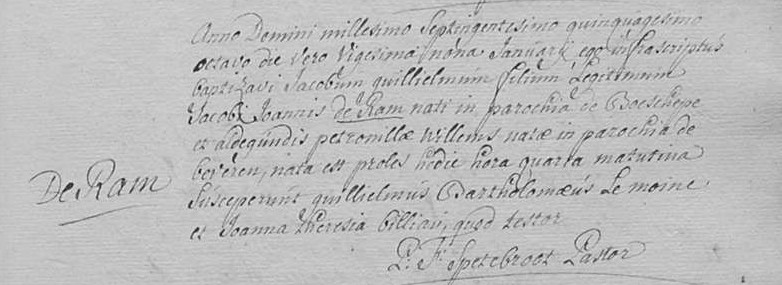 Anno Domini millesimo Septingentesimo quinquagesimo
octavo die vero vigesima nona Januarii ego infrascriptus
baptizavi Jacobum quillielmum filium Legitimum
Jacobi Joannis de Ram nati in parochia de Boeschepe
et aldegundis petronillæ Willems natæ in parochia de
beveren, nata est proles hodie hora quarta matutina
De Ram
Susceperunt quillielmus Bartholomæus Le moine
et Joanna theresia billiau, quod testor
P. F. Spetebroot Pastor